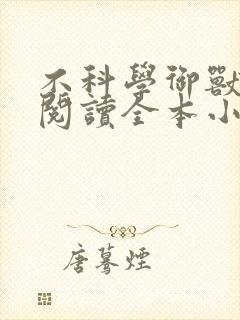 不科學御獸
閱讀全本小
唐騫煙